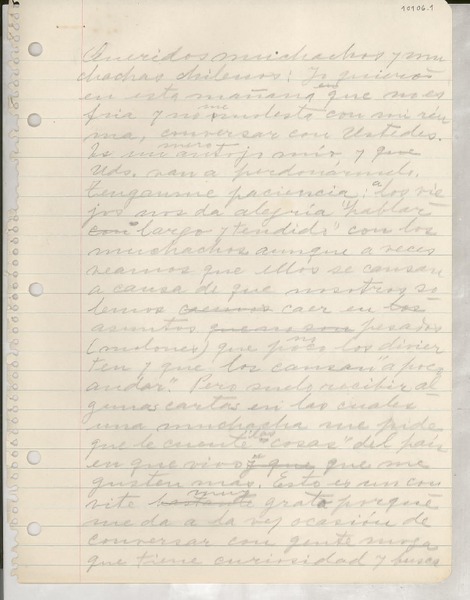 10106.1
Queridos muchachos y mu
chachas chilenos: Yo quiero
en esta mañana en que no es
fria y no me molesta con mi reu
ma, conversar con Ustedes.
Es un mero antojo mío y que
Uds. van a perdonármelo,
tenganme paciencia: a los vie
jos nos da alegría "hablar
con largo y tendido" con los
muchachos aunque a veces
veamos que ellos se cansan
a causa de que nosotros so
lemos caer en los
asuntos que son pesados
(melones) que no los divier
ten y que los cansan "a poco
andar". Pero suelo recibir al
gunas cartas en las cuales
una muchacha me pide
que le cuente "cosas" del país
en que vivo y que que me
gusten mas. Esto es un con
vite bastante muy grato porque
me da a la vez ocasión de
conversar con gente moza
que tiene curiosidad y busca